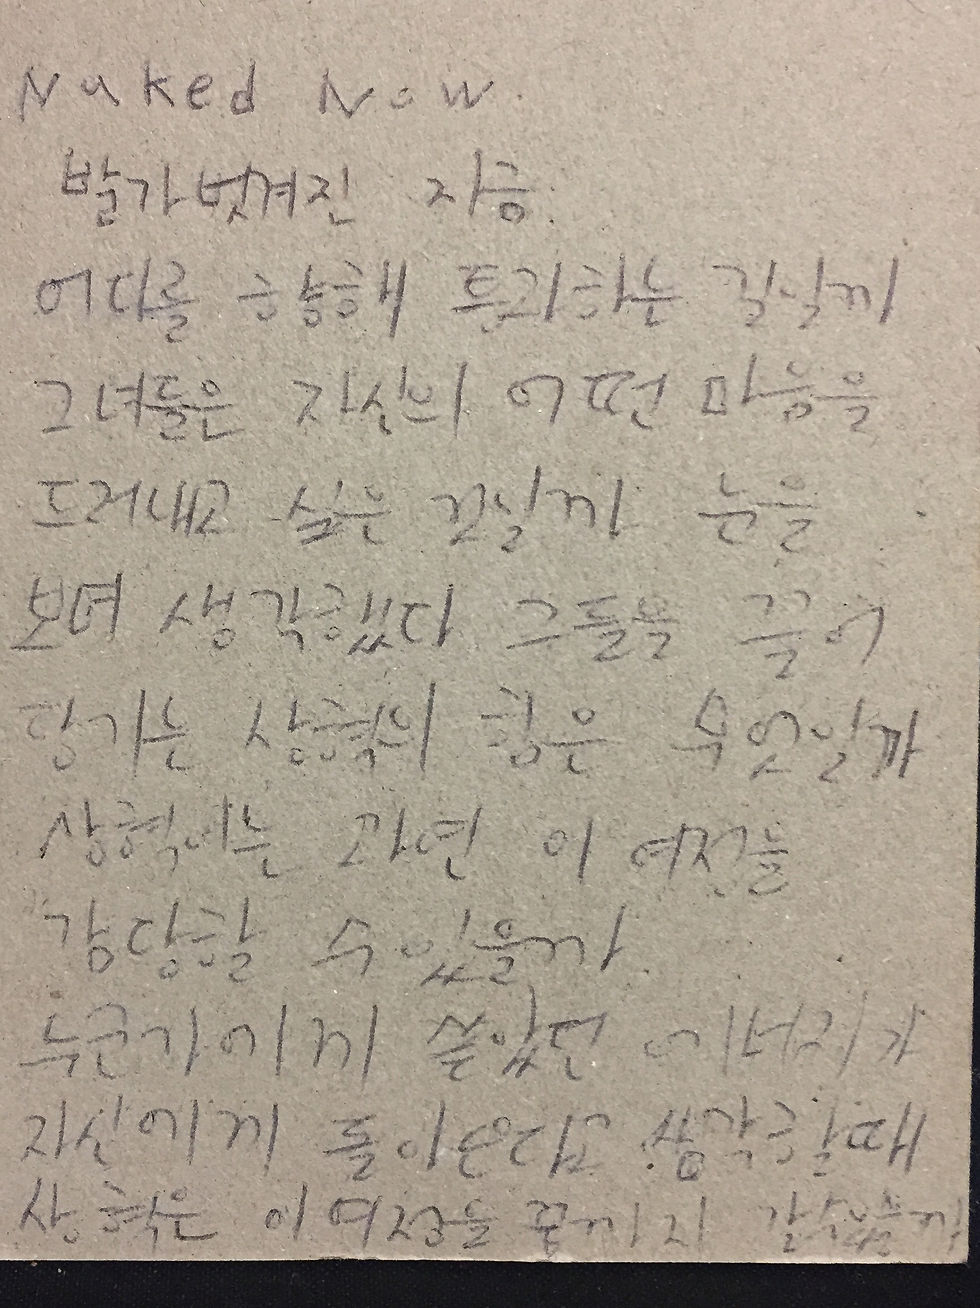 Naked Now.
발가벗겨진 지금.
어디를 향해 투과하는 것일까
그녀들은 자신의 어떤 마음을
드러내고 싶은 것일까 눈을
보며 생각했다 그들을 끌어
당기는 상혁의 힘은 무엇일까
상혁이는 과연 이 여정을
감당할 수 있을까
누군가에게 쏟았던 에너지가
자신에게 돌아온다고 생각할때
상혁은 이 여정을 끝까지 갈수있을까